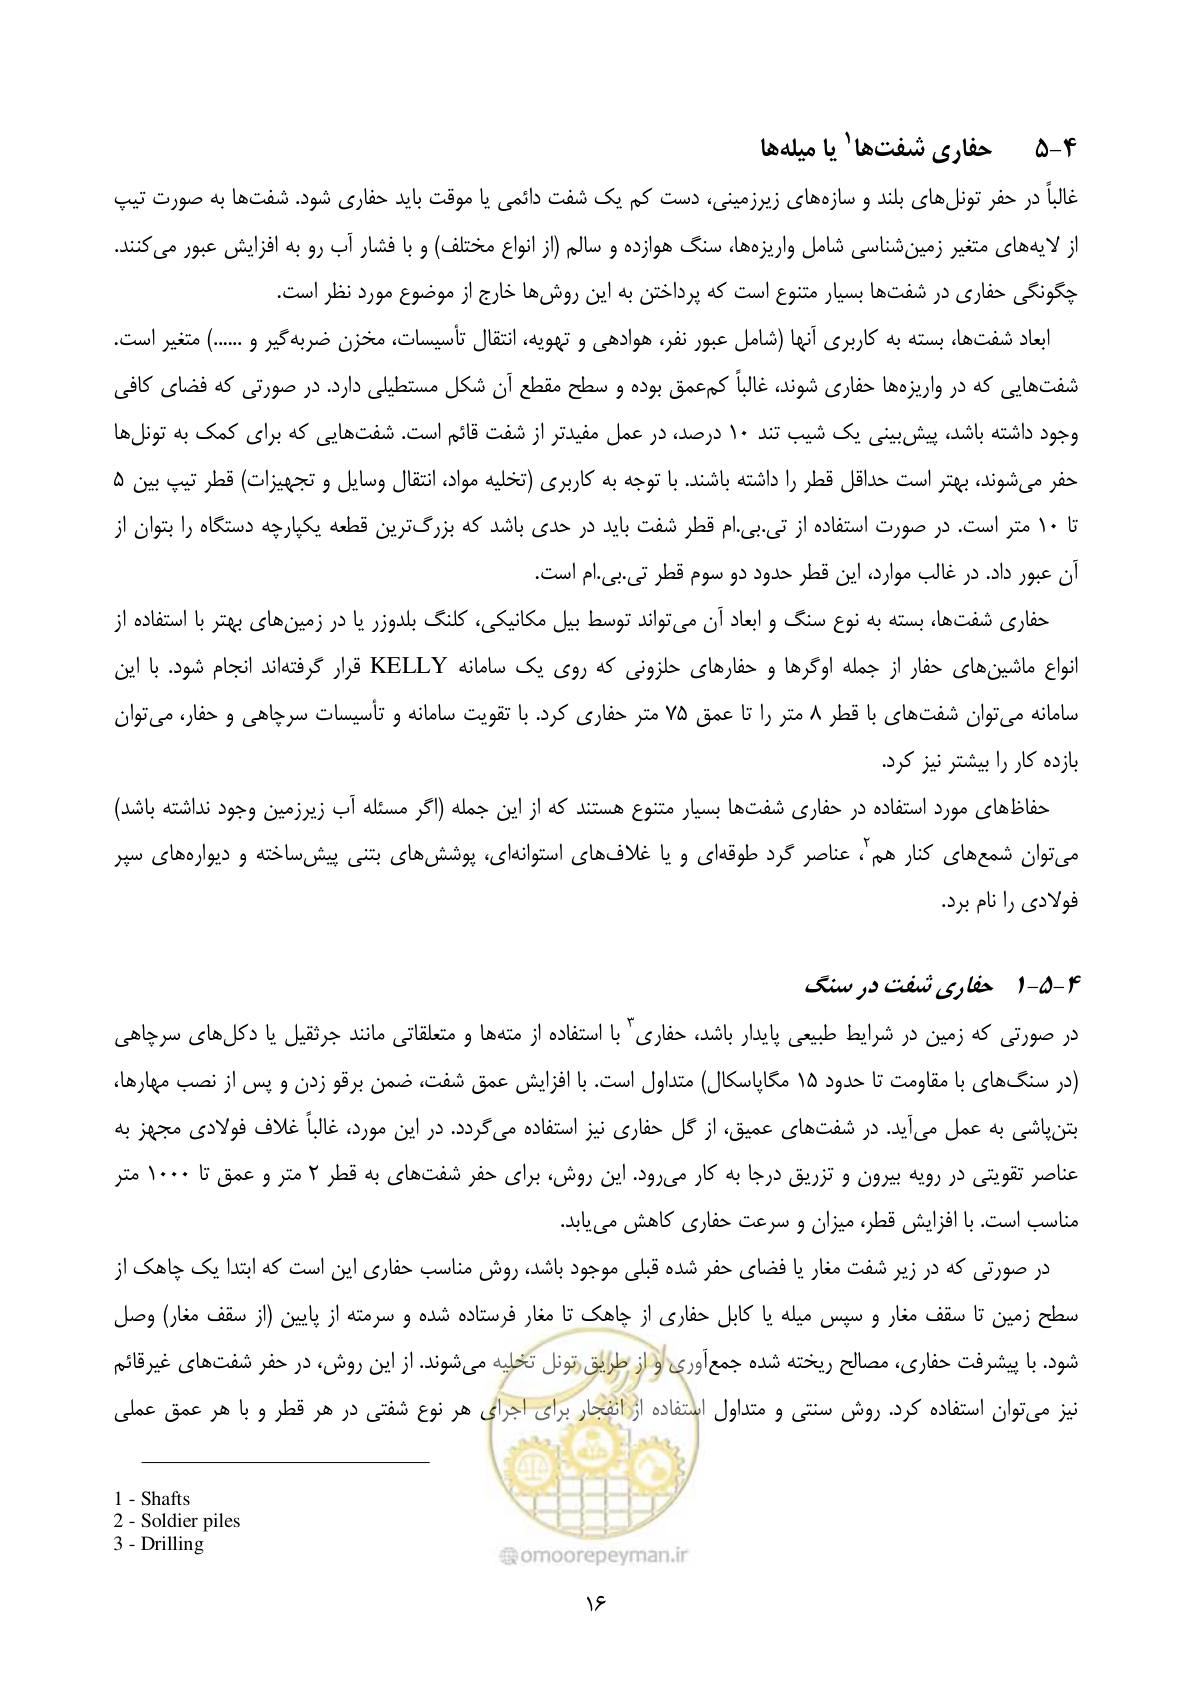 ۴-۵ حفاری شفت‌ها۱ یا میله‌ها
غالباً در حفر تونل‌های بلند و سازه‌های زیرزمینی، دست کم یک شفت دائمی یا موقت باید حفاری شود. شفت‌ها به صورت تیپ
از لایه‌های متغیر زمین‌شناسی شامل واریزه‌ها، سنگ هوازده و سالم (از انواع مختلف) و با فشار آب رو به افزایش عبور می‌کنند.
چگونگی حفاری در شفت‌ها بسیار متنوع است که پرداختن به این روش‌ها خارج از موضوع مورد نظر است.
ابعاد شفت‌ها، بسته به کاربری آنها (شامل عبور نفر، هوادهی و تهویه، انتقال تأسیسات، مخزن ضربه‌گیر و ......) متغیر است.
شفت‌هایی که در واریزه‌ها حفاری شوند، غالباً کم‌عمق بوده و سطح مقطع آن شکل مستطیلی دارد. در صورتی که فضای کافی
وجود داشته باشد، پیش‌بینی یک شیب تند ۱۰ درصد، در عمل مفیدتر از شفت قائم است. شفت‌هایی که برای کمک به تونل‌ها
حفر می‌شوند، بهتر است حداقل قطر را داشته باشند. با توجه به کاربری (تخلیه مواد، انتقال وسایل و تجهیزات) قطر تیپ بین ۵
تا ۱۰ متر است. در صورت استفاده از تی.بی.ام قطر شفت باید در حدی باشد که بزرگ‌ترین قطعه یکپارچه دستگاه را بتوان از
آن عبور داد. در غالب موارد، این قطر حدود دو سوم قطر تی.بی.ام است.
حفاری شفت‌ها، بسته به نوع سنگ و ابعاد آن می‌تواند توسط بیل مکانیکی، کلنگ بلدوزر یا در زمین‌های بهتر با استفاده از
انواع ماشین‌های حفار از جمله اوگرها و حفارهای حلزونی که روی یک سامانه KELLY قرار گرفته‌اند انجام شود. با این
سامانه می‌توان شفت‌های با قطر ۸ متر را تا عمق ۷۵ متر حفاری کرد. با تقویت سامانه و تأسیسات سرچاهی و حفار، می‌توان
بازده کار را بیشتر نیز کرد.
حفاظ‌های مورد استفاده در حفاری شفت‌ها بسیار متنوع هستند که از این جمله (اگر مسئله آب زیرزمین وجود نداشته باشد)
می‌توان شمع‌های کنار هم۲، عناصر گرد طوقه‌ای و یا غلاف‌های استوانه‌ای، پوشش‌های بتنی پیش‌ساخته و دیواره‌های سپر
فولادی را نام برد.
۴-۵-۱ حفاری شفت در سنگ
در صورتی که زمین در شرایط طبیعی پایدار باشد، حفاری۳ با استفاده از مته‌ها و متعلقاتی مانند جرثقیل یا دکل‌های سرچاهی
(در سنگ‌های با مقاومت تا حدود ۱۵ مگاپاسکال) متداول است. با افزایش عمق شفت، ضمن برقو زدن و پس از نصب مهارها،
بتن‌پاشی به عمل می‌آید. در شفت‌های عمیق، از گل حفاری نیز استفاده می‌گردد. در این مورد، غالباً غلاف فولادی مجهز به
عناصر تقویتی در رویه بیرون و تزریق درجا به کار می‌رود. این روش، برای حفر شفت‌های به قطر ۲ متر و عمق تا ۱۰۰۰ متر
مناسب است. با افزایش قطر، میزان و سرعت حفاری کاهش می‌یابد.
در صورتی که در زیر شفت مغار یا فضای حفر شده قبلی موجود باشد، روش مناسب حفاری این است که ابتدا یک چاهک از
سطح زمین تا سقف مغار و سپس میله یا کابل حفاری از چاهک تا مغار فرستاده شده و سرمته از پایین (از سقف مغار) وصل
شود. با پیشرفت حفاری، مصالح ریخته شده جمع‌آوری و از طریق تونل تخلیه می‌شوند. از این روش، در حفر شفت‌های غیرقائم
نیز می‌توان استفاده کرد. روش سنتی و متداول استفاده از انفجار برای اجرای هر نوع شفتی در هر قطر و با هر عمق عملی
1 - Shafts
2 - Soldier piles
3 - Drilling
امور پیمان
@omoorepeyman.ir
۱۶